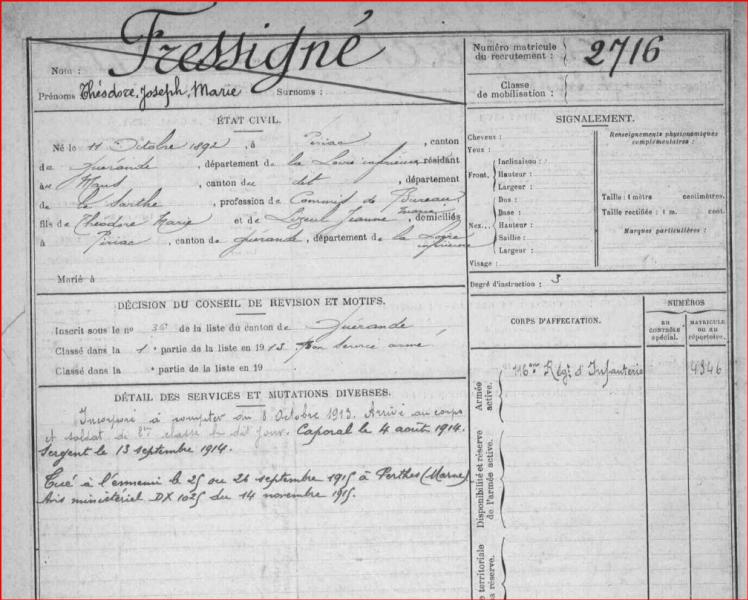 Nom : Fressigné
Prénoms Théodore, Joseph, Marie Surnoms :
Numéro matricule du recrutement : 2716
Classe de mobilisation :
ÉTAT CIVIL.
Né le 11 Octobre 1892, à Piriac, canton
de Guérande, département de la Loire inférieure résidant
au Mans, canton du dit, département
de la Sarthe, profession de Commis de Bureau
fils de Théodore Marie et de Jeanne Marie, domiciliés
à Piriac, canton de Guérande, département de la Loire inférieure
Marié à
SIGNALEMENT.
Cheveux :
Yeux :
Front. Inclinaison :
Hauteur :
Largeur :
Nez... Dos :
Base :
Hauteur :
Saillie :
Largeur :
Visage :
Renseignements physionomiques complémentaires :
Taille : 1 mètre centimètres.
Taille rectifiée : 1 m. cent.
Marques particulières :
Degré d'instruction : 3
DÉCISION DU CONSEIL DE RÉVISION ET MOTIFS.
Inscrit sous le no 36 de la liste du canton de Guérande
Classé dans la 1e partie de la liste en 1913. Bon service armé
Classé dans la e partie de la liste en 19
DÉTAIL DES SERVICES ET MUTATIONS DIVERSES.
Incorporé à compter du 8 Octobre 1913. Arrivé au corps
et soldat de 2me classe du dit jour. Caporal le 4 août 1914.
Sergent le 13 septembre 1914.
Tué à l'ennemi le 25 ou 26 septembre 1915 à Perthes (Marne)
Avis ministériel DX 1025 du 14 novembre 1915.
CORPS D'AFFECTATION.
NUMÉROS
AU CONTRÔLE spécial.
MATRICULE OU AU répertoire.
Armée active.
116me Régt d'Infanterie 4346
Disponibilité et réserve de l'armée active.
territoriale
sa réserve.